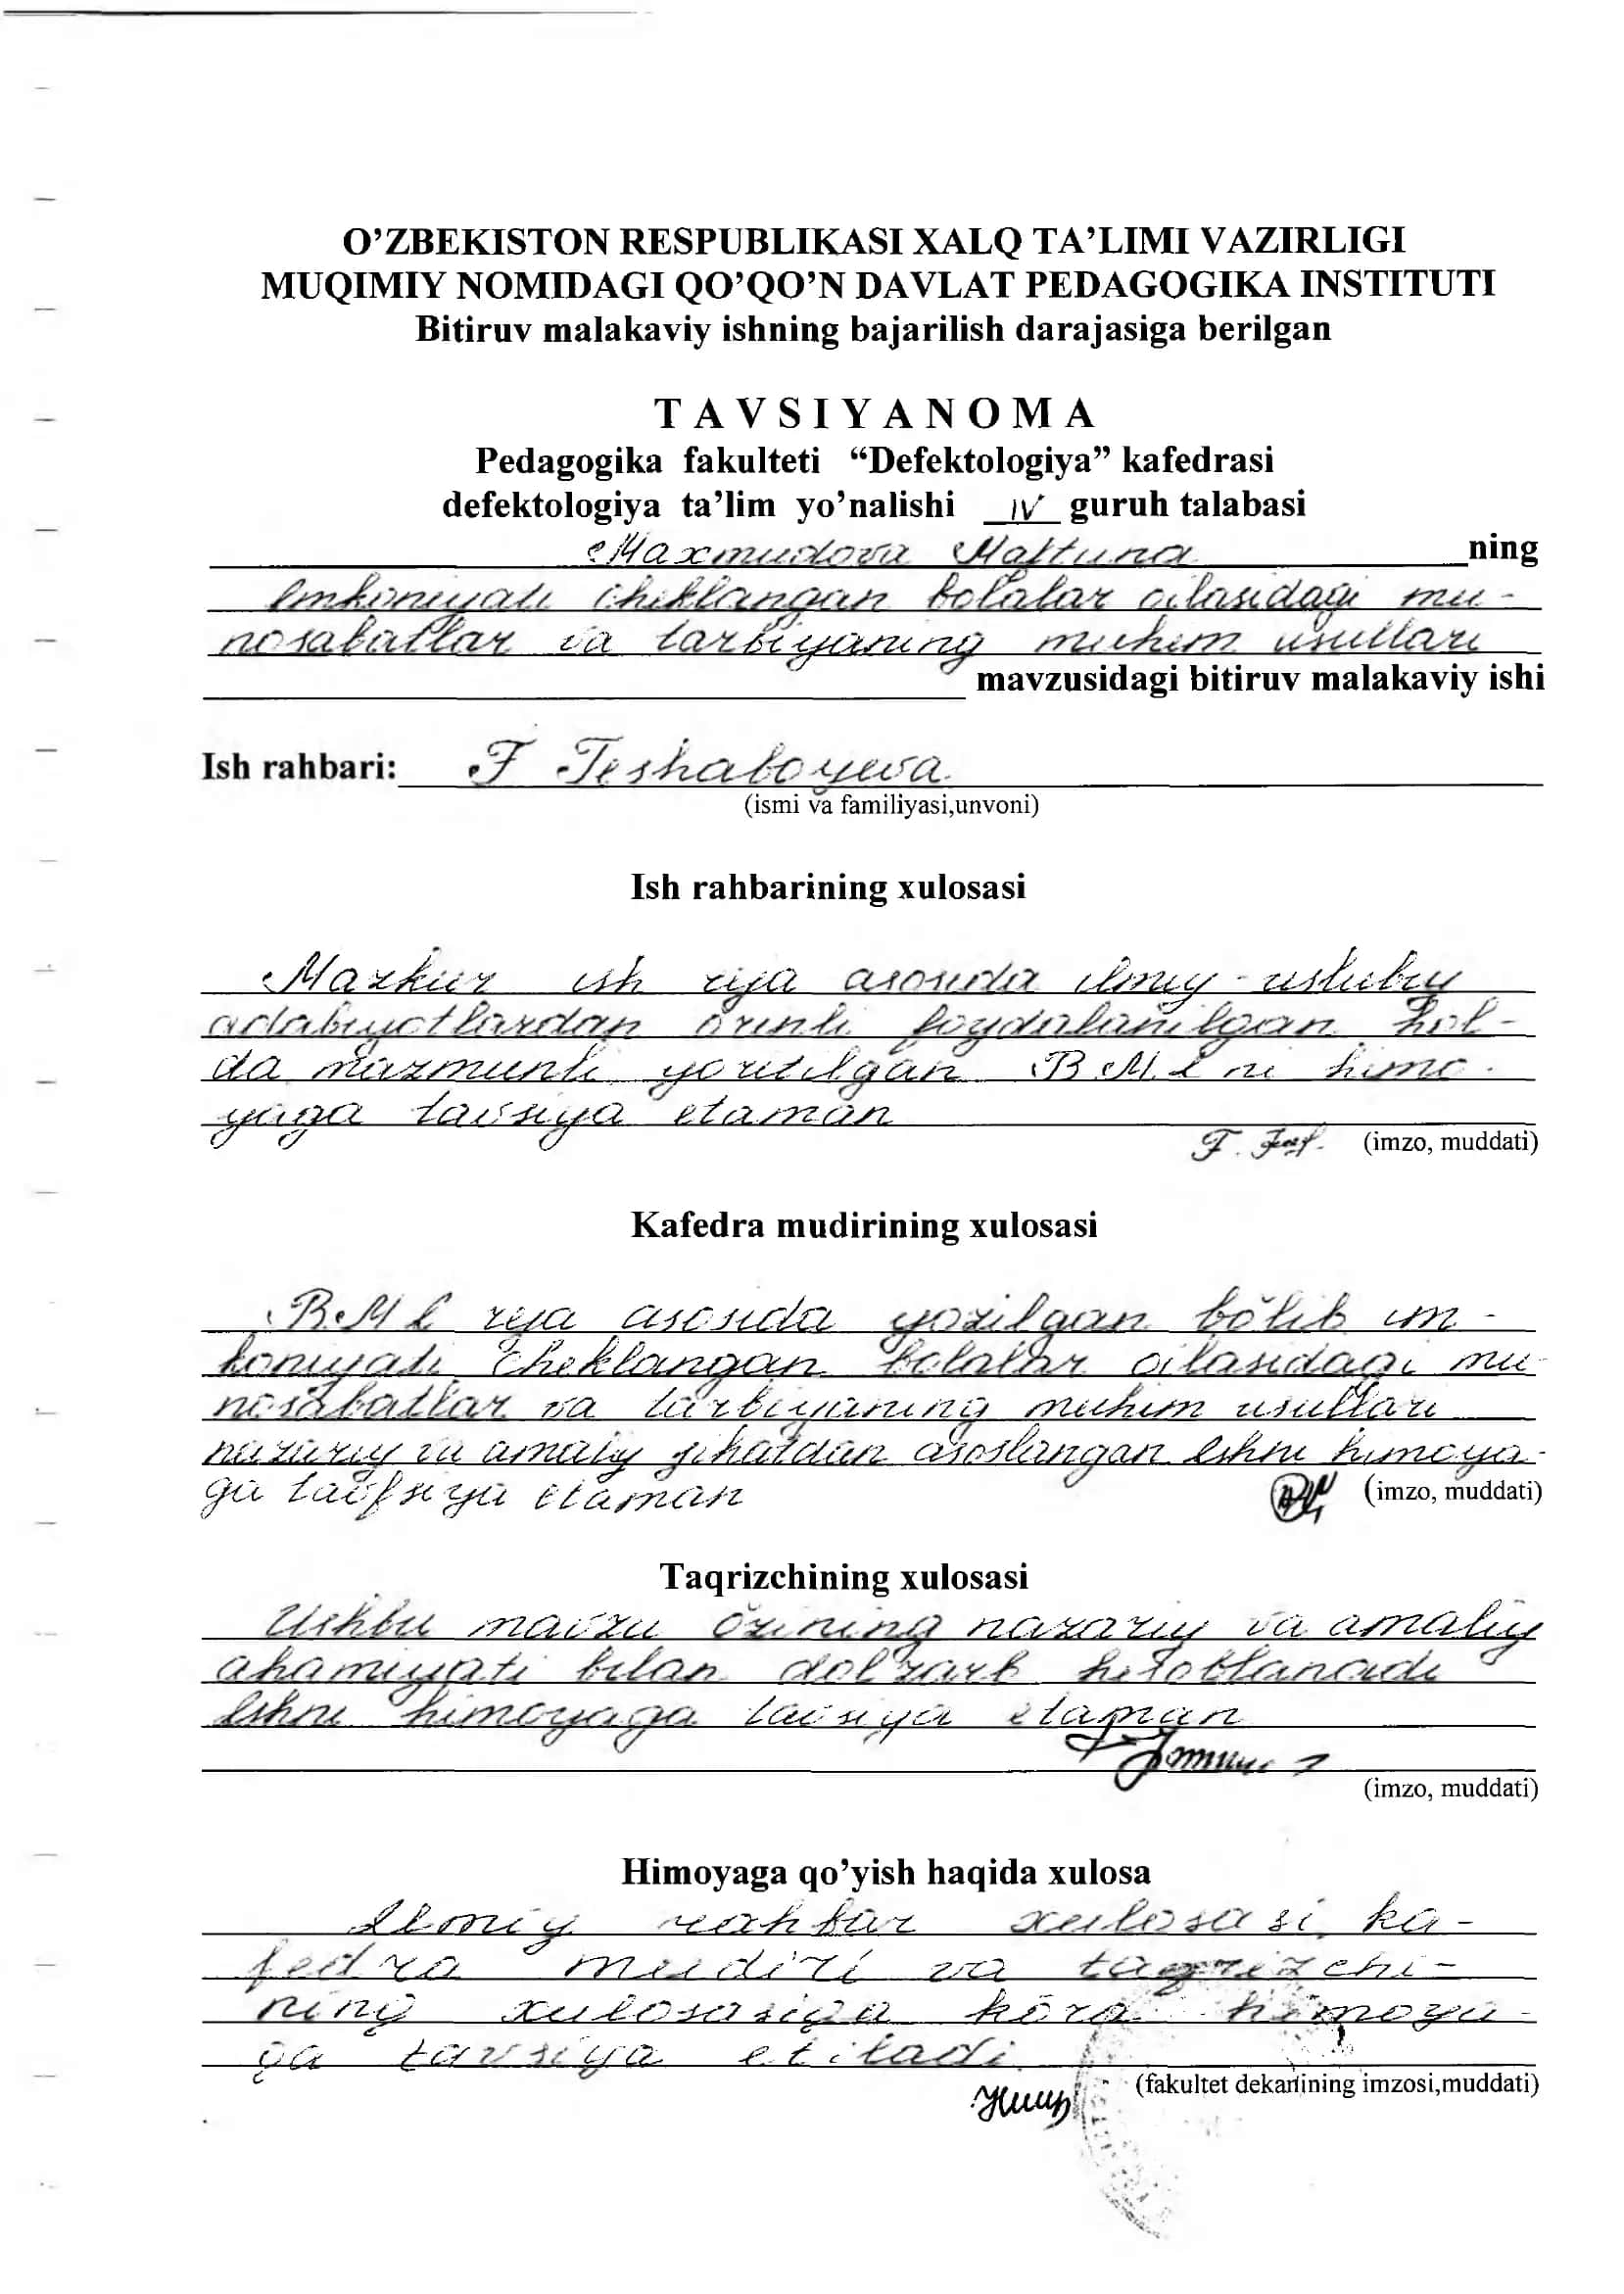 O’ZBEKISTON RESPUBLIKASI XALQ TA’LIMI VAZIRLIGI
MUQIMIY NOMIDAGI QO’QO’N DAVLAT PEDAGOGIKA INSTITUTI
Bitiruv malakaviy ishning bajarilish darajasiga berilgan
TAVSIYANOMA
Pedagogika fakulteti “Defektologiya” kafedrasi
defektologiya ta’lim yo’nalishi IV guruh talabasi
Maxmudova Maftuna ning
Imkoniyati cheklangan bolalar oilasidagi mu-
nosabatlar va tarbiyaning muhim usullari
mavzusidagi bitiruv malakaviy ishi
Ish rahbari: F Teshaboyeva
(ismi va familiyasi,unvoni)
Ish rahbarining xulosasi
Mazkur ish reja asosida ilmiy-uslubiy
adabiyotlardan õrinli foydalanilgan hol-
da mazmunli yoritilgan BMI ni himo-
yaga tavsiya etaman
(imzo, muddati)
Kafedra mudirining xulosasi
BMI reja asosida yozilgan bõlib im-
koniyati cheklangan bolalar oilasidagi mu-
nosabatlar va tarbiyaning muhim usullari
nazariy va amaliy jihatdan asoslangan Ishni himoya-
ga tavfsiya etaman
(imzo, muddati)
Taqrizchining xulosasi
Ushbu mavzu õzining nazariy va amaliy
ahamiyati bilan dolzarb hisoblanadi
Ishni himoyaga tavsiya etaman
(imzo, muddati)
Himoyaga qo’yish haqida xulosa
Ilmiy rahbar xulosasi, ka-
fedra mudiri va taqrizchi-
ning xulosasiga kõra himoya-
ga tavsiya etiladi
(fakultet dekanining imzosi,muddati)